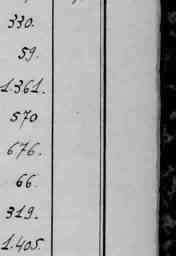 330.
59.
1.361.
570
676.
66.
319.
1.405.